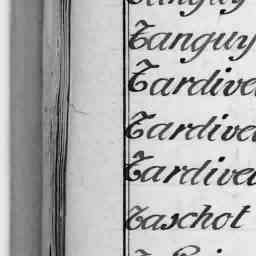 Tanguy
Tanguy
Tardive
Tardive
Tardive
Taschot